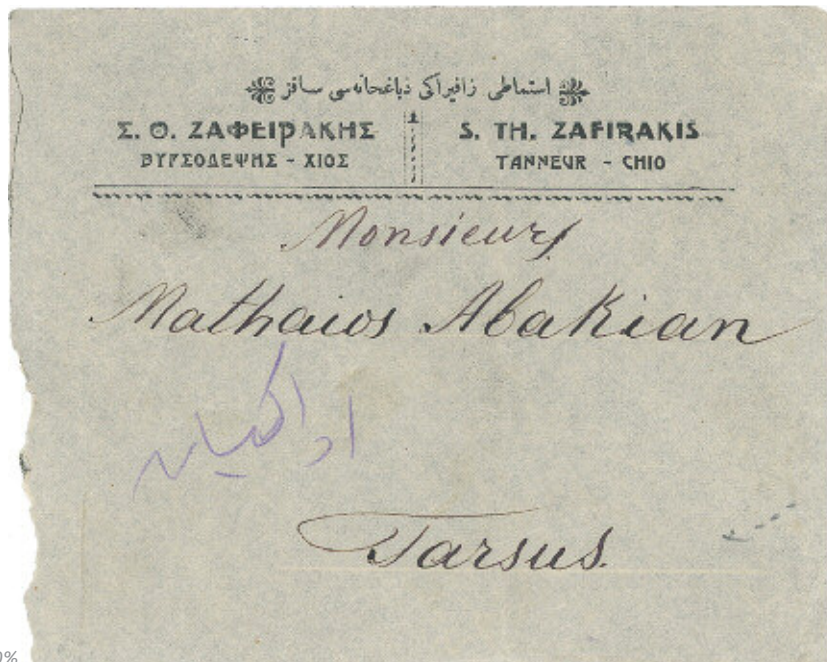 استماطی زافیراکی دباغخانه‌سی ساقز
Σ. Θ. ΖΑΦΕΙΡΑΚΗΣ
ΒΥΡΣΟΔΕΨΗΣ - ΧΙΟΣ
S. TH. ZAFIRAKIS
TANNEUR - CHIO
Monsieur
Mathaios Abakian
Tarsus.